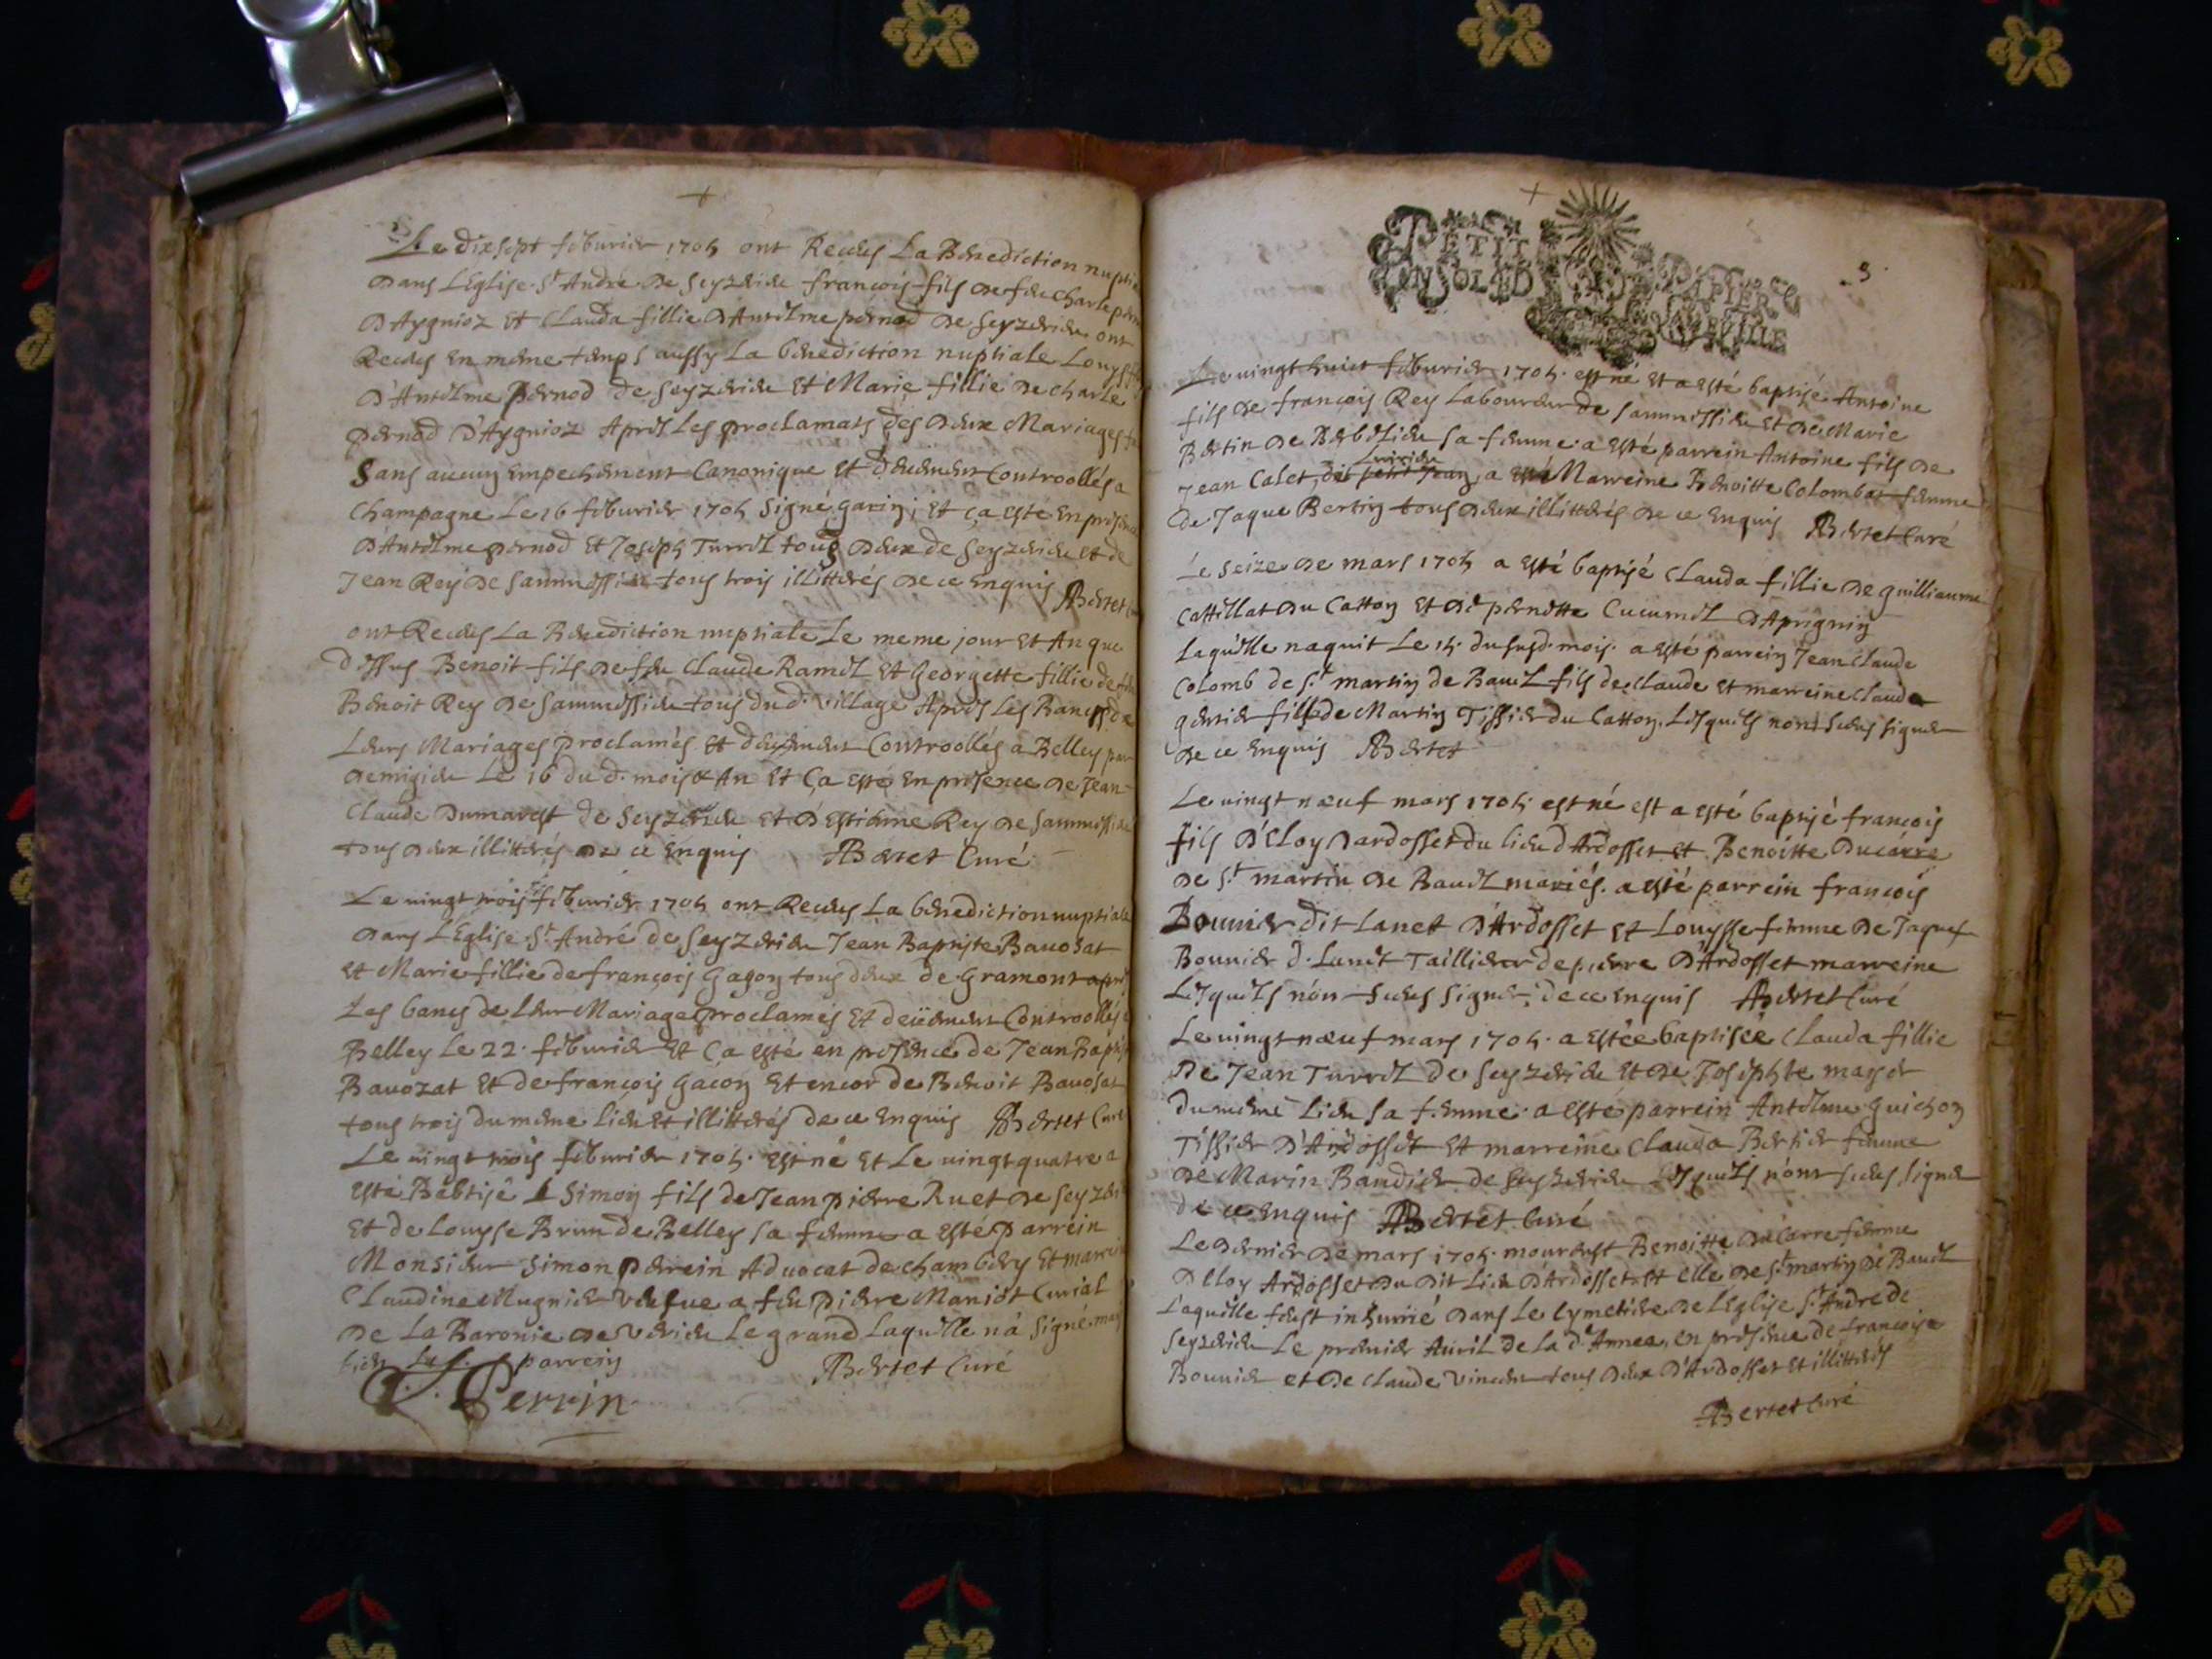 +
Le dix sept feburier 1705 ont Receus La Benediction nuptia
dans L'Eglise St André de Seyzerieu françois fils de feu Charle
D'Aygnioz et Clauda fillie d'Antelme pernod de Seyzerieu ont
Receus en meme temps aussy La benediction nuptiale Louys
d'Antelme Pernod de Seyzerieu et Marie fillie de Charle
pernod d'Aygnioz Apres Les proclamats des deux Mariages
Sans aucun empechement Canonique et deuement Controollés a
Champagne Le 16 feburier 1705 Signé garin; et ça esté en presence
d'Antelme pernod et Joseph Turrel tous deux de Seyzerieu et de
Jean Rey de Sammessieu tous trois illitterés de ce Enquis ABertet
ont Receus La Benediction nuptiale Le meme jour et An que
dessus Benoit fils de feu Claude Ramel et Georgette fillie de feu
Benoit Rey de Sammessieu tous du d. village Apres Les Bancs de
Leurs Mariages proclamés et deuement Controollés a Belley par
demigieu Le 16 du d. mois & An et Ça esté en presence de Jean
Claude Dumarest de Seyzerieu et d'Estienne Rey de Sammessieu
tous deux illitterés de ce Enquis ABertet Curé
Le vingt trois feburier 1705 ont Receus La benediction nuptiale
dans L'Eglise St André de Seyzerieu Jean Baptiste Bavosat
et Marie fillie de françois Gagon tous deux de Gramont apres
Les bancs de Leur Mariage proclamés et deüement Controollés
Belley Le 22 feburier et Ça esté en presence de Jean Baptiste
Bavozat et de françois Gacon et encor de Benoit Bavosat
tous trois du meme Lieu et illitterés de ce Enquis ABertet Curé
Le vingt trois feburier 1705 est né et Le vingt quatre a
esté Bebtisé Simon fils de Jean pierre Ruet de Seyzerieu
et de Louyse Brun de Belley sa femme a esté parrein
Monsieur Simon perrein Advocat de chambery et marreine
Claudine Mugnier veufue a feu pierre Maniot Curial
de La Baronie de Verieu Le grand Laquelle n'a Signé mais
bien parrein ABertet Curé
Perrin
+
PETIT PAPIER
5
Le vingt huict feburier 1705 est né et a esté baptisé Antoine
fils de françois Rey Laboureur de Sammessieu et de Marie
Bertin de Beboelieu sa femme a esté parrein Antoine fils de
Jean Calet, dit petit Jean, a esté Marreine Benoitte Colombat femme
de Jaque Bertin tous deux illitterés de ce Enquis ABertet Curé
Le Seize de mars 1705 a esté baptisé Clauda fillie de guilliaume
Cattillat du Catton et de pernette Cucumel d'Aprignin
Laquelle naquit Le 15 du susd. mois. a esté parrein Jean Claude
Colomb de St martin de Bavel fils de Claude et marreine Clauda
gerrier fille de Martin Tissier du Catton. Lesquels n'ont Sceus signer
de ce Enquis ABertet
Le vingt nœuf mars 1705 est né est a esté baptisé françois
fils d'Eloy dardosset du lieu d'Ardosset et Benoitte Ducarre
de St martin de Bavel mariés. a esté parrein françois
Bouvier dit Lanet d'Ardosset et Louysse femme de Jaques
Bouvier d. Lanet Taillieur de pierre d'Ardosset marreine
Lesquels n'ont Sceus Signer; de ce enquis ABertet Curé
Le vingt nœuf mars 1705 a estée baptisée Clauda fillie
de Jean Turrel de Seyzerieu et de Josephte mayer
du meme Lieu sa femme. a esté parrein Antelme Guichon
Tissier d'Ardosset et marreine Clauda Bertier femme
de Marin Baudier de Seyzerieu Lesquels n'ont sceus signer
de ce enquis ABertet Curé
Le dernier de mars 1705 mourust Benoitte du Carre femme
d'Eloy Ardosset du dit Lieu d'Ardosset et elle de St martin de Bavel
Laquelle feust inhumé dans Le Cymetiere de L'Eglise St André de
Seyzerieu Le premier Auril de la d. Annee, en presence de françois
Bouvier et de Claude Vincent tous deux d'Ardosset et illitterés
ABertet Curé